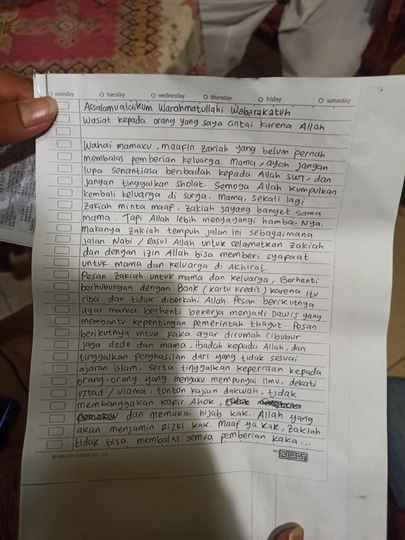 monday tuesday wednesday thursday friday saturday
Assalamualaikum Warahmatullahi Wabarakatuh
Wasiat kepada orang yang saya cintai karena Allah
Wahai mamaku, maafin zakiah yang belum pernah
membalas pemberian keluarga. Mama, ayah jangan
lupa senantiasa beribadah kepada Allah swt, dan
jangan tinggalkan sholat. Semoga Allah kumpulkan
kembali keluarga di surga. Mama, sekali lagi
zakiah minta maaf. zakiah sayang banget sama
mama. Tapi Allah lebih menyayangi hamba-Nya.
makanya zakiah tempuh jalan ini sebagaimana
jalan Nabi / Rasul Allah untuk selamatkan zakiah
dan dengan izin Allah bisa memberi syafaat
untuk mama dan keluarga di Akhirat.
Pesan zakiah untuk mama dan keluarga, Berhenti
berhubungan dengan Bank (kartu kredit) karena itu
riba dan tidak diberkahi Allah. Pesan berikutnya
agar mama berhenti bekerja menjadi Dawis yang
membantu kepentingan pemerintah thagut. Pesan
berikutnya untuk kaka agar dirumah cibubur
jaga dede dan mama, ibadah kepada Allah, dan
tinggalkan penghasilan dari yang tidak sesuai
ajaran islam. serta tinggalkan kepercaan kepada
orang-orang yang mengaku mempunyai ilmu, dekati
ustad / ulama, tonton kajian dakwah, tidak
membanggakan kafir Ahok,
dan memakai hijab kak. Allah yang
akan menjamin rizki kak. maaf ya kak, zakiah
tidak bisa membalas semua pemberian kaka...